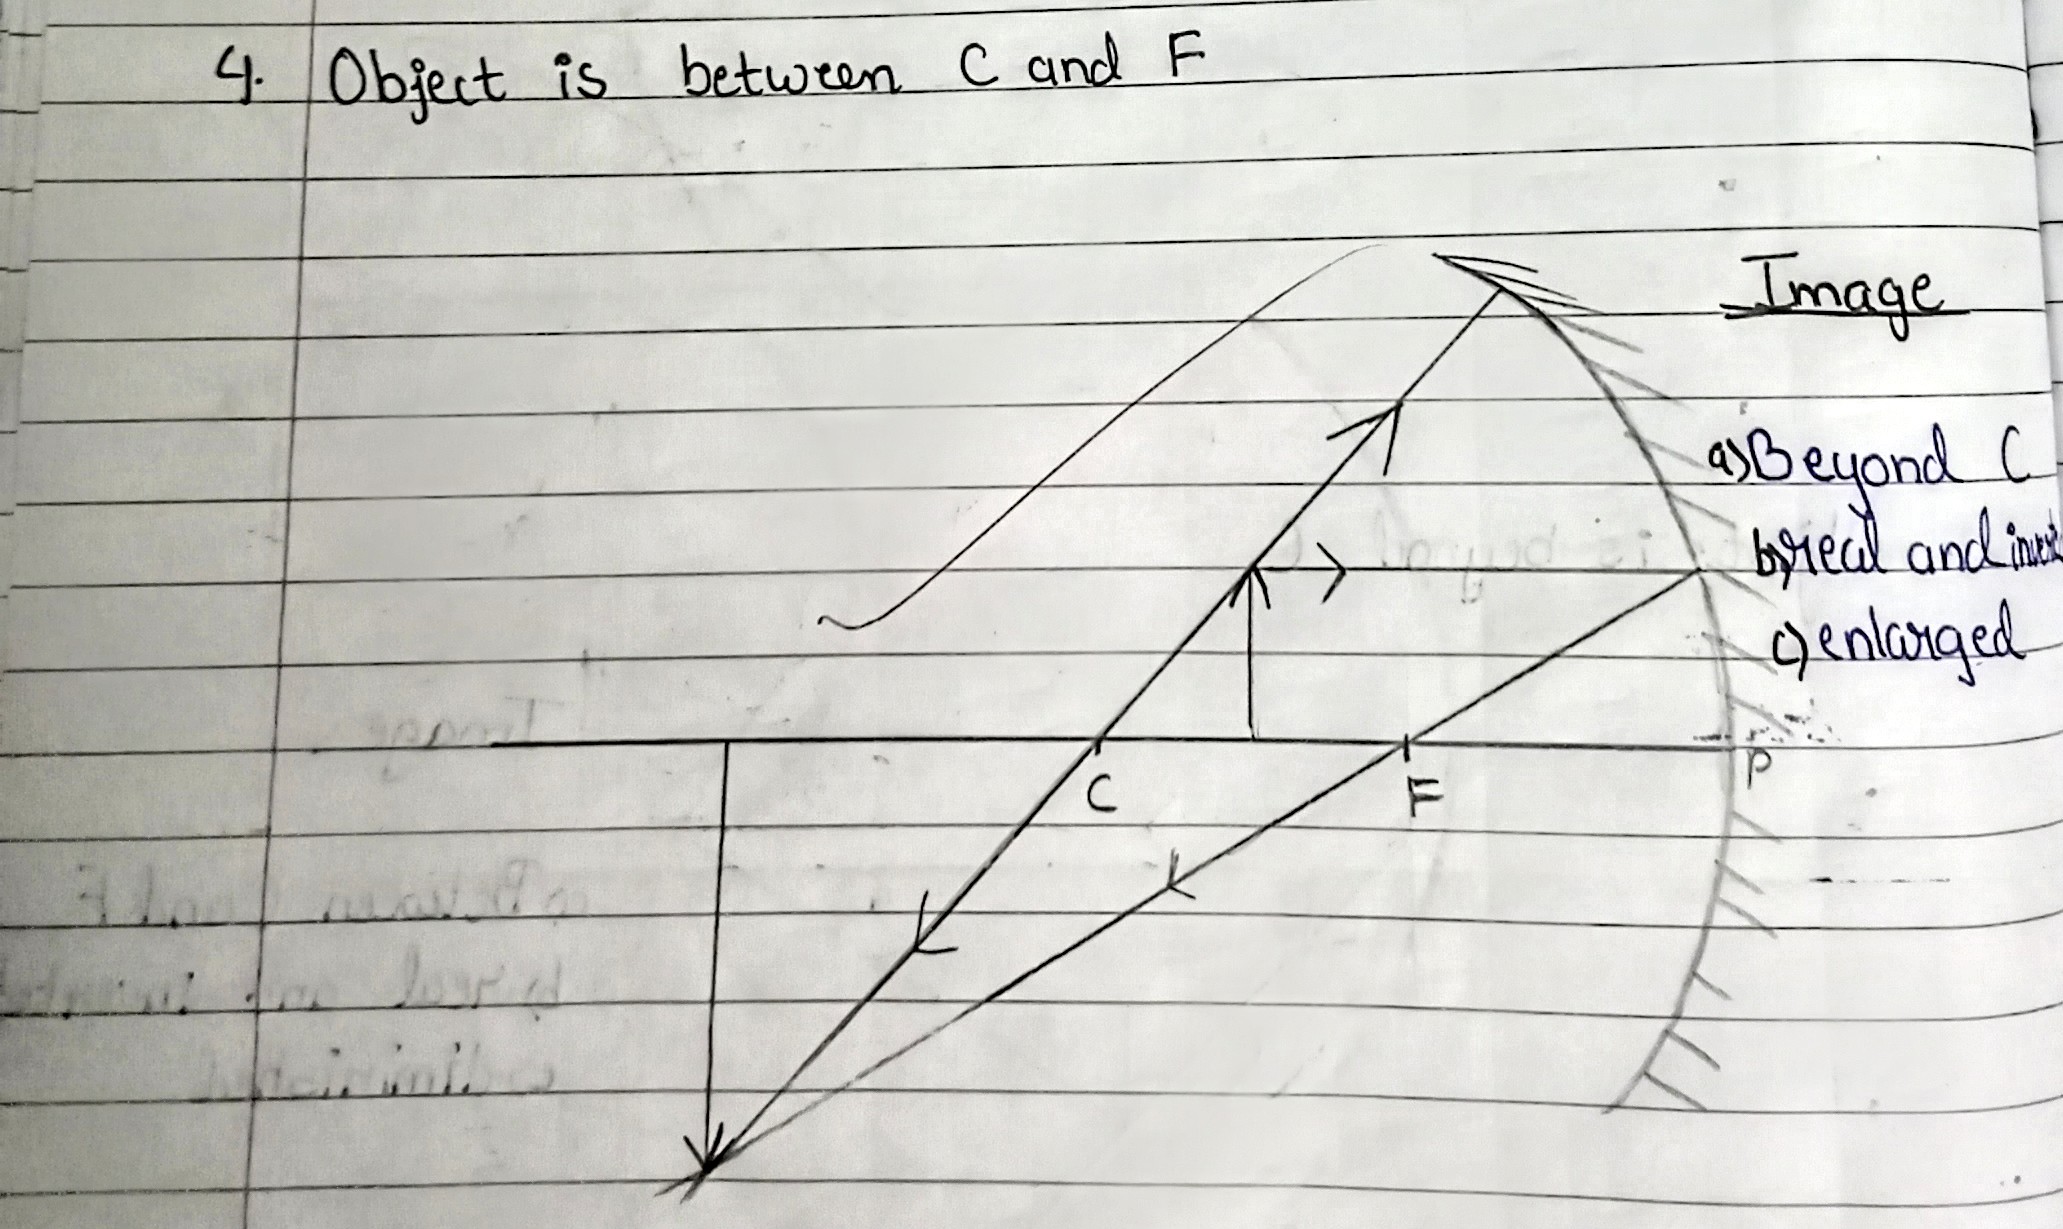 4. Object is between C and F
Image
a) Beyond C
b) real and
c) enlarged
C
F
P